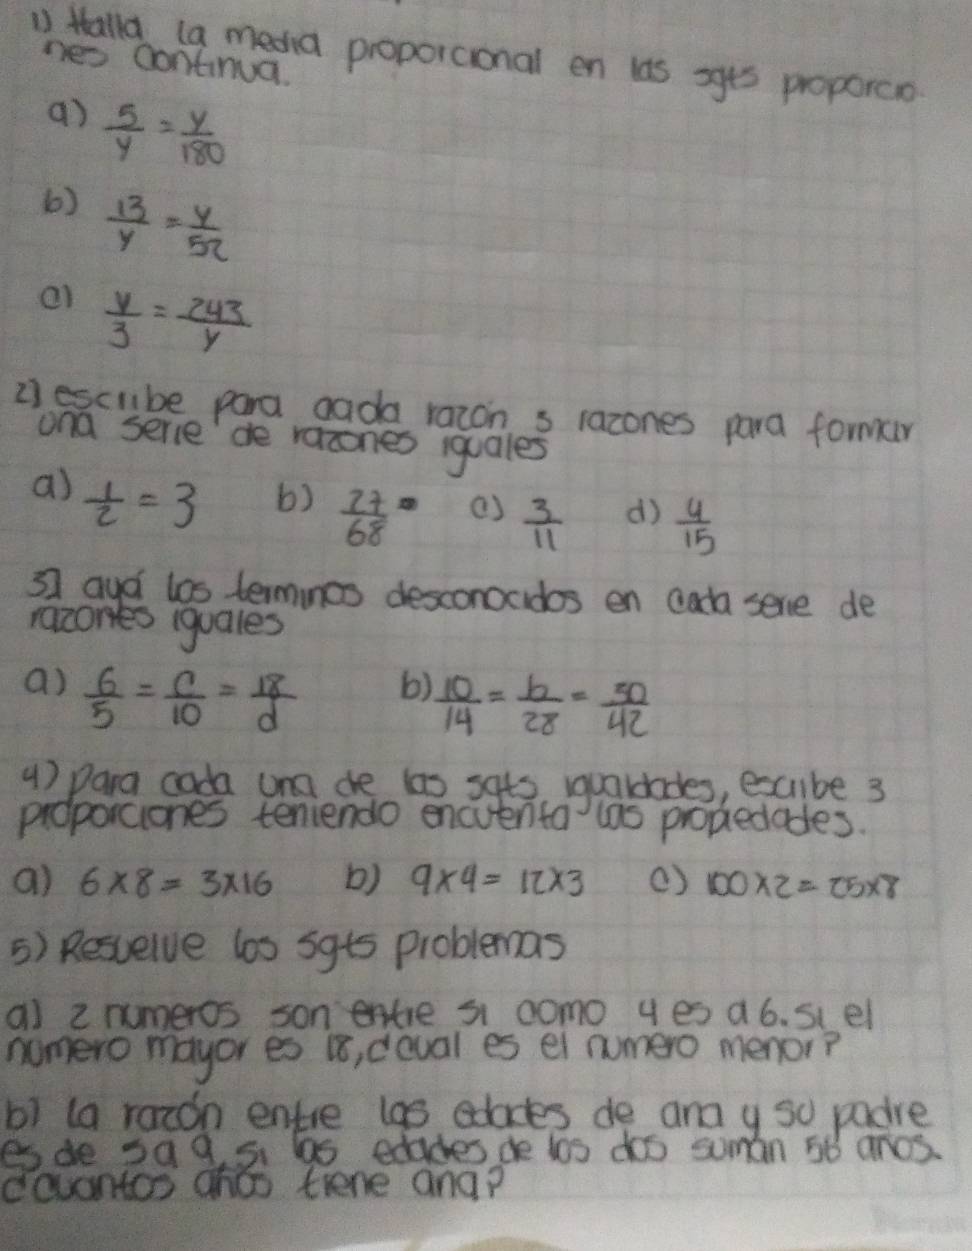 1) Halla la media proporcional en las sgts proporcio
nes continua.
a) 5/y = y/180
b) 13/y = y/52
c) y/3 = 243/y
2) escribe para cada razón 3 razones para formar
una serie de razones iguales
a) 1/2 = 3 b) 27/68 = c) 3/11 d) 4/15
3) los terminos desconocidos en cada serie de
razones iguales
a) 6/5 = c/10 = 18/d b) 10/14 = b/28 = 30/42
4) para cada una de las sgts igualdades, escribe 3
proporciones teniendo encuenta las propiedades.
a) 6x8 = 3x16 b) 9x4 = 12x3 c) 100x2 = 25x8
5) Resuelve los sgts problemas
a) 2 numeros son entre si como 4 es a 6. si el
numero mayor es 18, ¿cual es el numero menor?
b) la razón entre las edades de ana y su padre
es de a 9. si las edades de los dos suman 56 anos.
¿cuantos años tiene ana?